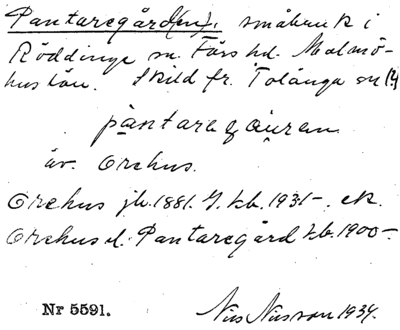 Pantaregård(en), småbruk i
Röddinge sn. Färs hd. Malmö-
hus län. Skild fr. Tolånga sn (?)
pantaregåuren
äv. Orehus.
Orehus jb. 1881. J. kb. 1931-. ek.
Orehus el. Pantaregård kb. 1900-
Nr 5591.
Nils Nilsson 1934.